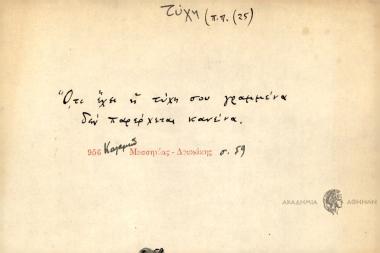 Τύχη (π.π. (25)
Ὅ,τι ἔχει ἡ τύχη σου γραμμένα
δὲν παρέρχεται κανένα.
956 Μεσσηνίας - Λουκάκης σ. 59
ΑΚΑΔΗΜΙΑ ΑΘΗΝΩΝ